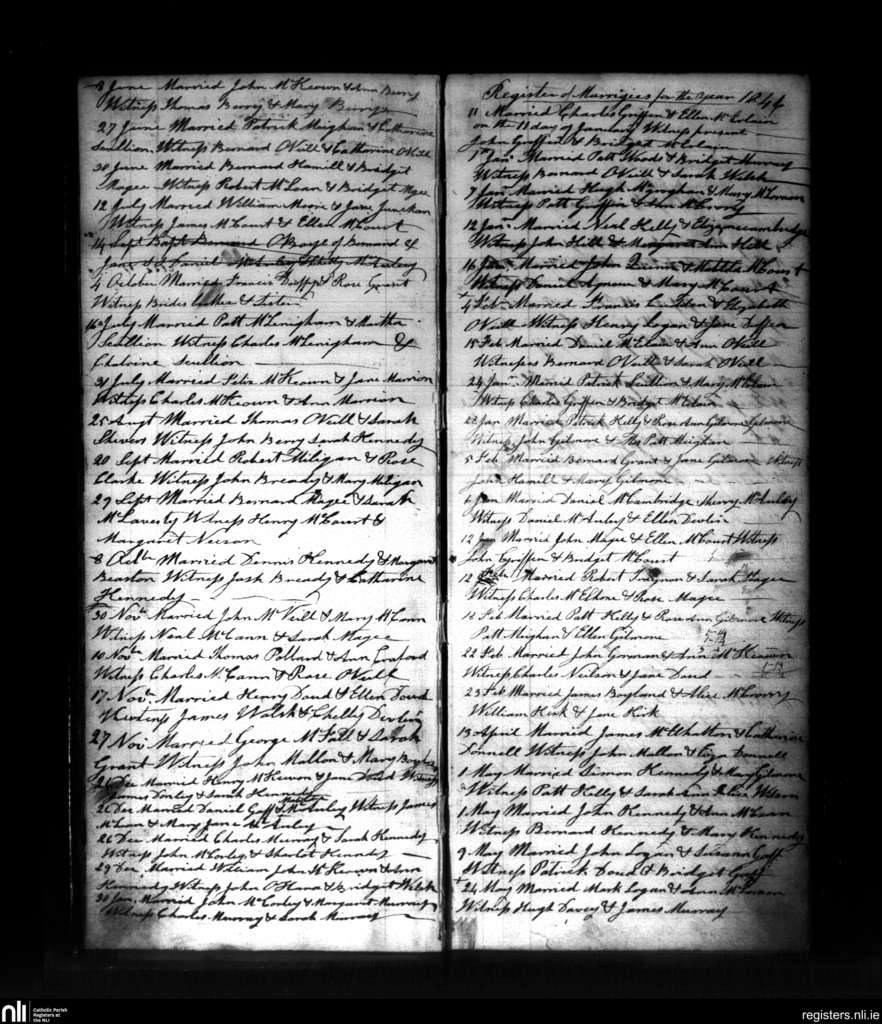 8 June Married John McKeown & Ann Berry
Witness Thomas Berry & Mary
27 June Married Patrick Meighan & Catherine
Scullion. Witness Bernard ONeill & Catherine ONeill
30 June Married Bernard Hamill & Bridget
Magee Witness Robert McLean & Bridget Mgee
12 July Married William & Jane
Witness James McCourt & Ellen McCourt
14 Sept Bapt Bernard of Bernard &
Jane
4 October Married Francis Duffy & Rose Grant
Witness
16 July Married Patt McLinigham & Martha
Scullion Witness Charles McLenigham &
Scullion
31 July Married Peter McKeown & Jane Marrion
Witness Charles McKeown & Ann Marrion
25 Augt Married Thomas ONeill & Sarah
Shevers Witness John Berry Sarah Hennedy
20 Sept Married Robert Miligan & Rose
Clarke Witness John Bready & Mary Miligan
29 Sept Married Bernard Magee & Sarah
McLaverty Witness Henry McCourt &
Margaret Neeson
8 Married Dennis Hennedy & Margaret
Witness Bready & Catherine
Hennedy
30 Novr Married John McNeill & Mary McCann
Witness Neal McCann & Sarah Magee
10 Novr Married Thomas Pollard & Ann
Witness Charles McCann & Rose ONeill
17 Novr Married Henry Doud & Ellen Doud
Witness James Walsh & Devlin
27 Nov Married George McFall & Sarah
Grant Witness John Mallon & Mary
26 Dec Married Henry McKeown & Jane Doud Witness
James & Sarah Hennedy
26 Dec Married Daniel Goff & McAuley Witness James
McLean & Mary Jane McAuley
26 Dec Married Charles Murray & Sarah Hennedy
Witness John McCorley & Sharlot Hennedy
29 Dec Married William John McKeown & Ann
Hennedy Witness John OHara & Bridget Welsh
30 Jan. Married John McCorley & Margaret Murray
Witness Charles Murray & Sarah Murray
Register of Marriges for the year 1844
11 Married Charles Griffen & Ellen McErlain
on the 11 day of January Witness present
John Griffen & Bridget McErlain
1st Jan. Married Patt Woods & Bridget Murray
Witness Bernard ONeill & Sarah Welsh
7 Jan Married Hugh & Mary
Witness Patt Griffin & Ann McCrory
12 Jan. Married Neal Kelly &
Witness John Hill & Ann Hill
16 Jan. Married John Quinn & Matilda McCourt
Witness Daniel Agnew & Mary McCourt
4 Feb. Married Francis & Elizabeth
ONeill Witness Henry Logan & Jane
15 Feb Married Daniel & Ann ONeill
Witness Bernard ONeill & Sarah ONeill
24 Jan. Married Patrick Scullion & Mary McErlain
Witness Charles Griffen & Bridget McErlain
28 Jan Married Patrick Kelly & Rose Ann Gilmore
Witness John Gilmore & Patt Meighan
5 Feb Married Bernard Grant & Jane Gilmore Witness
John Hamill & Mary Gilmore
6 Jan Married Daniel McCambridge McAulay
Witness Daniel McAuley & Ellen Devlin
12 Jan Married John Magee & Ellen McCourt Witness
John Griffen & Bridget McCourt
12 Feb. Married Robert & Sarah Magee
Witness Charles & Rose Magee
18 Feb Married Patt Kelly & Rose Ann Gilmore Witness
Patt Mighan & Ellen Gilmore
22 Feb. Married John Gorman & Ann McKeown
Witness Charles Neilson & Jane Doud
23 Feb Married James Boyland & Alice McCrorry
William Kirk & Jane Kirk
13 April Married James McWhatton & Catherine
Donnell Witness John Mallon & Eliza Donnell
1 May Married Simon Hennedy & Mary Gilmore
Witness Patt Kelly & Sarah Ann Wilson
1 May Married John Hennedy & Ann McCann
Witness Bernard Hennedy & Mary Hennedy
9 May Married John Logan & Susana Goff
Witness Patrick Doud & Bridget Goff
24 May Married Mark Logan & Ann
Witness Hugh Davey & James Murray
nli
Catholic Parish
Registers at
the NLI
registers.nli.ie